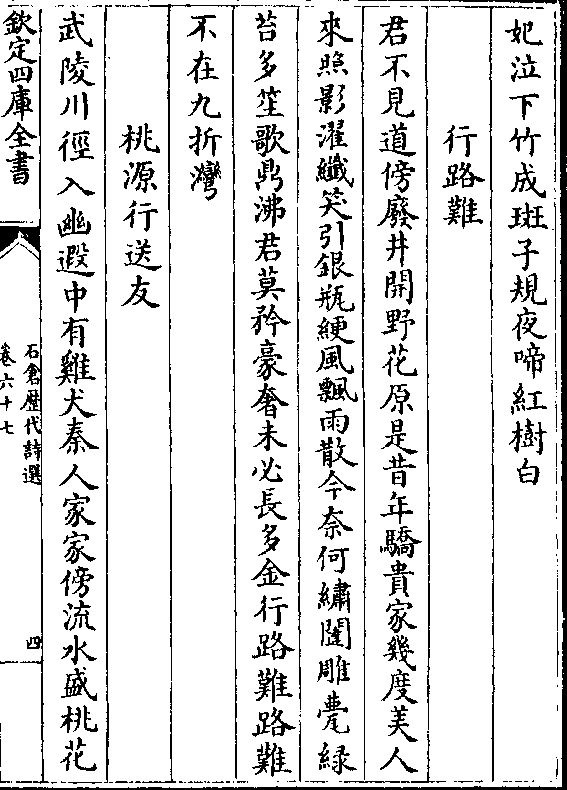 妃泣下竹成斑子規夜啼紅樹白
行路難
君不見道傍廢井開野花原是昔年驕貴家幾度美人
來照影濯纖笑引銀瓶綆風飄雨散今奈何繡闥雕甍緑
苔多笙歌鼎沸君莫矜豪奢未必長多金行路難路難
不在九折灣
桃源行送友
武陵川徑入幽遐中有雞犬秦人家家傍流水盛桃花
欽定四庫全書
石倉歴代詩選
卷六十七
四